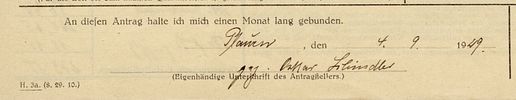 An diesen Antrag halte ich mich einen Monat lang gebunden.
Plauen, den 4. 9. 1929
gez. Oskar
(Eigenhändige Unterschrift des Antragstellers.)
H. 3a. (8. 29. 10.)